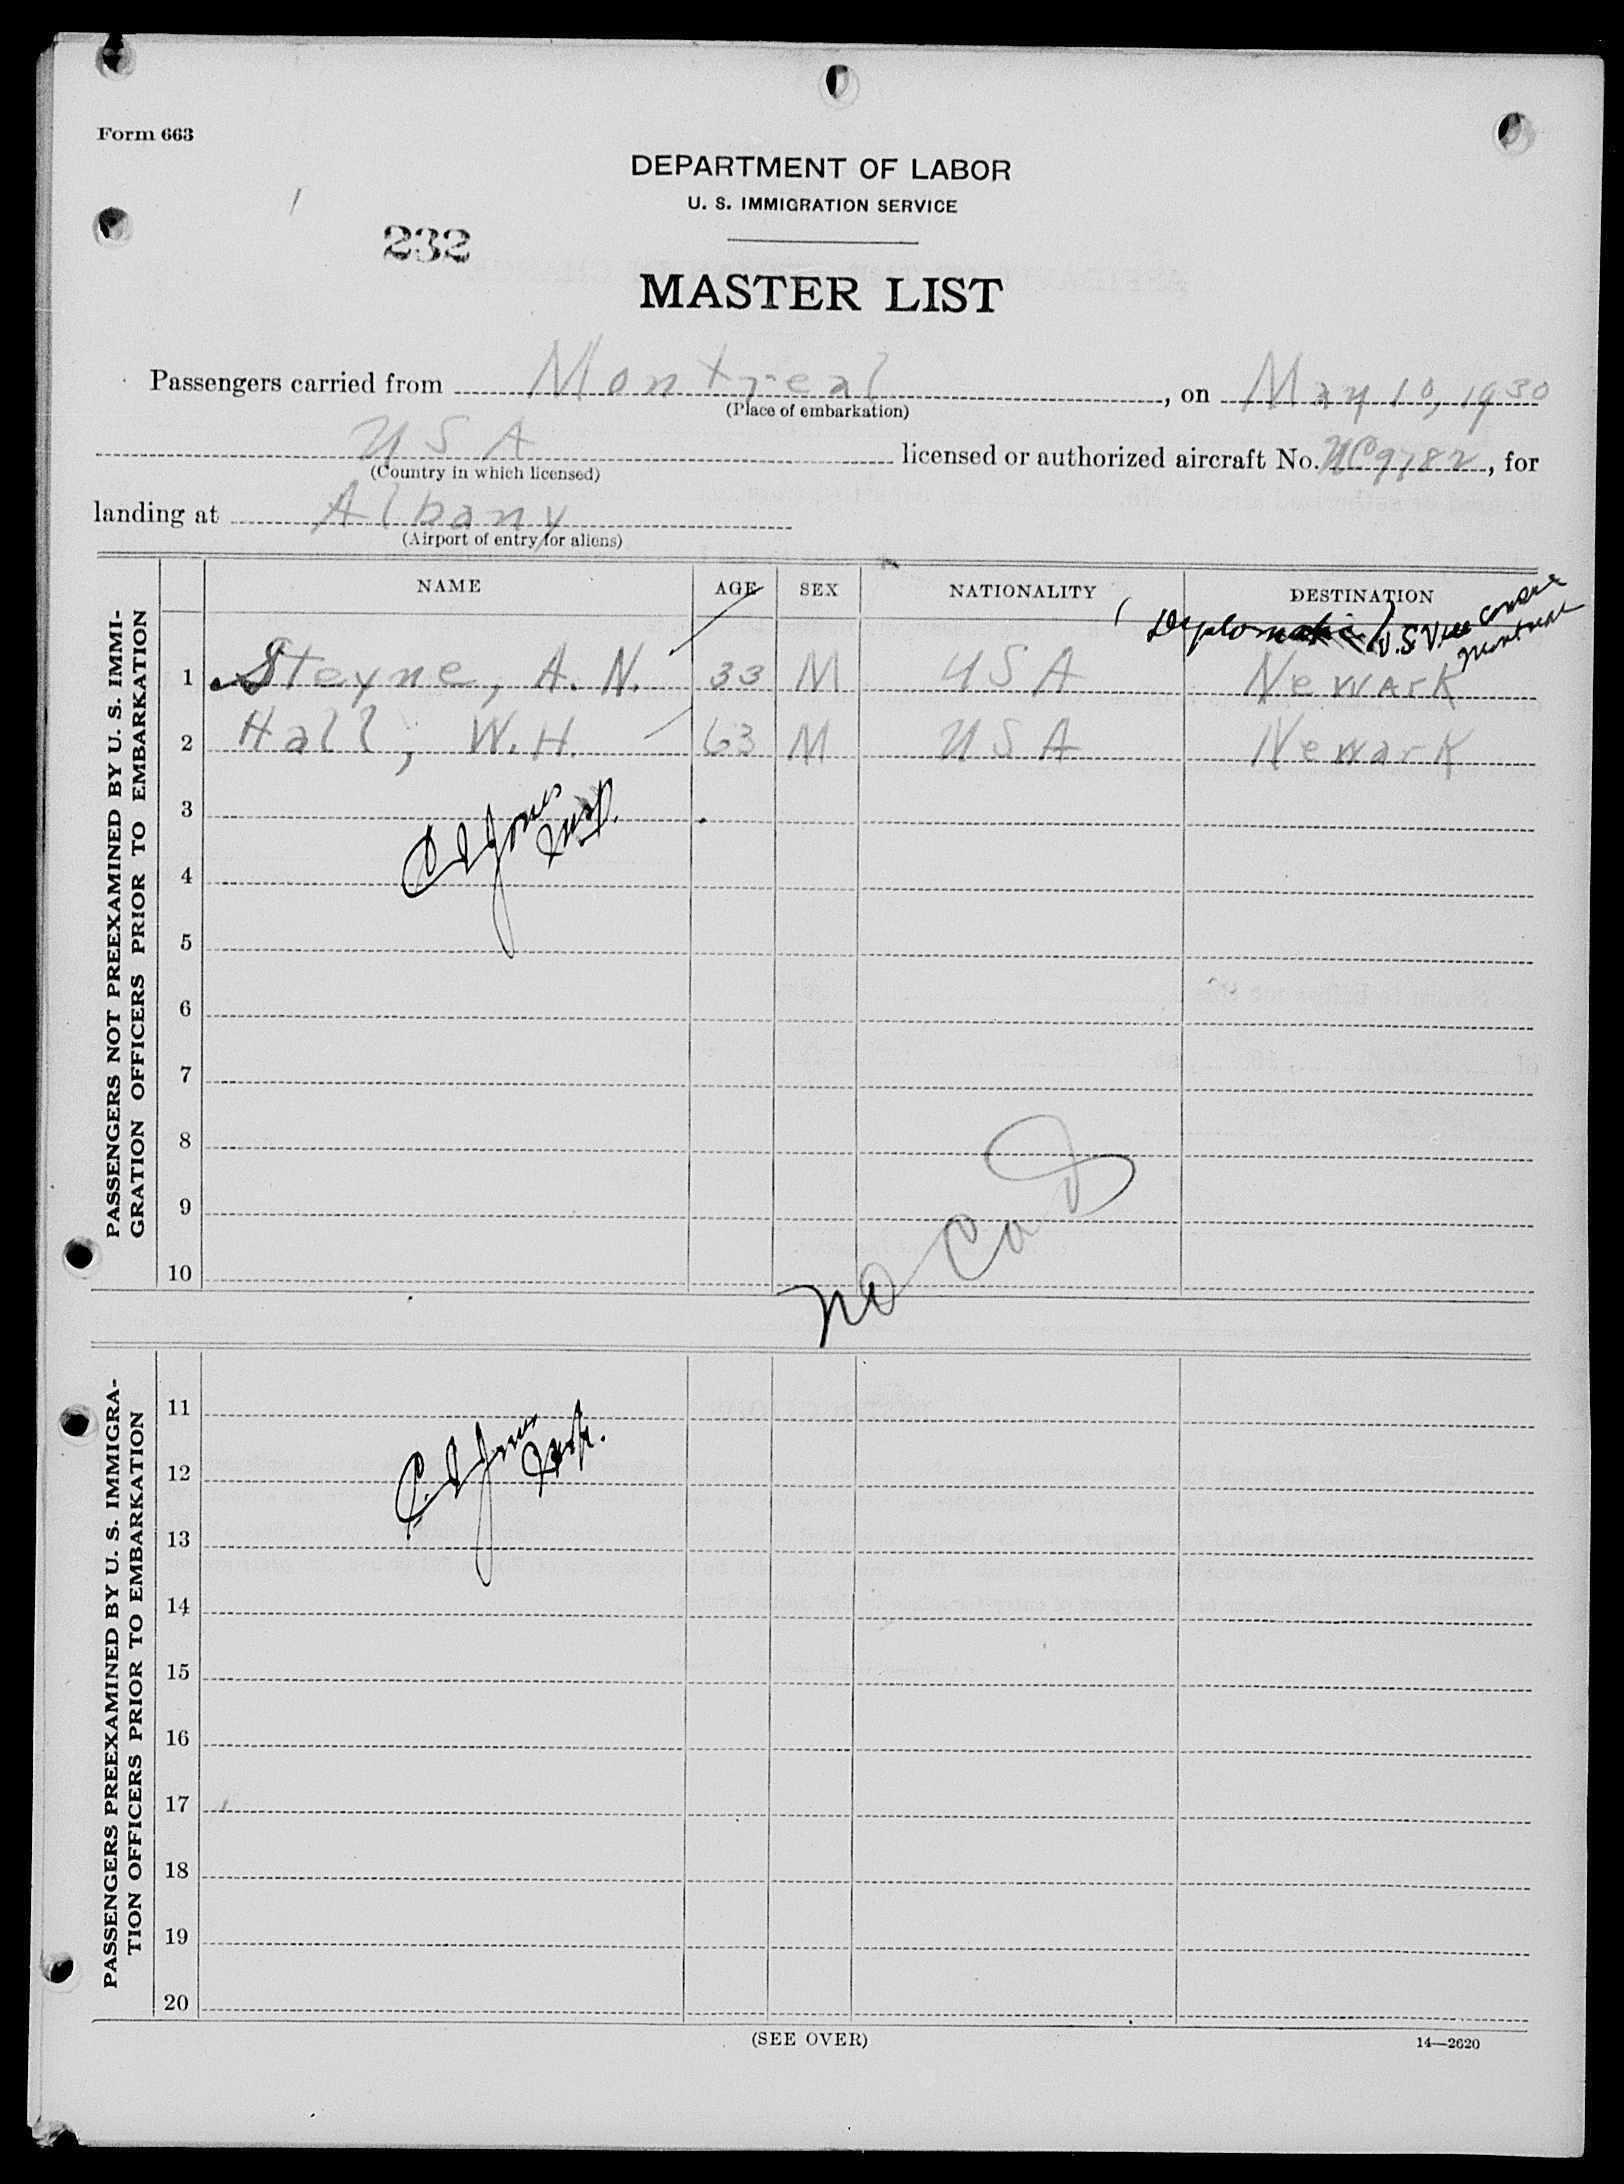 Form 663
DEPARTMENT OF LABOR
U. S. IMMIGRATION SERVICE
232
MASTER LIST
Passengers carried from Montreal, on May 10, 1930
(Place of embarkation)
USA licensed or authorized aircraft No. NC9782, for
(Country in which licensed)
landing at Albany
(Airport of entry for aliens)
NAME AGE SEX NATIONALITY DESTINATION
(Diplomatic) U.S. Vice Consul
Montreal
PASSENGERS NOT PREEXAMINED BY U. S. IMMI-
GRATION OFFICERS PRIOR TO EMBARKATION
1 Steyne, A. N. 33 M USA Newark
2 Hall, W. H. 63 M USA Newark
3
Jones
Insp.
4
5
6
7
8
9
10
No
PASSENGERS PREEXAMINED BY U. S. IMMIGRA-
TION OFFICERS PRIOR TO EMBARKATION
11
Jones
Insp.
12
13
14
15
16
17
18
19
20
(SEE OVER)
14—2620